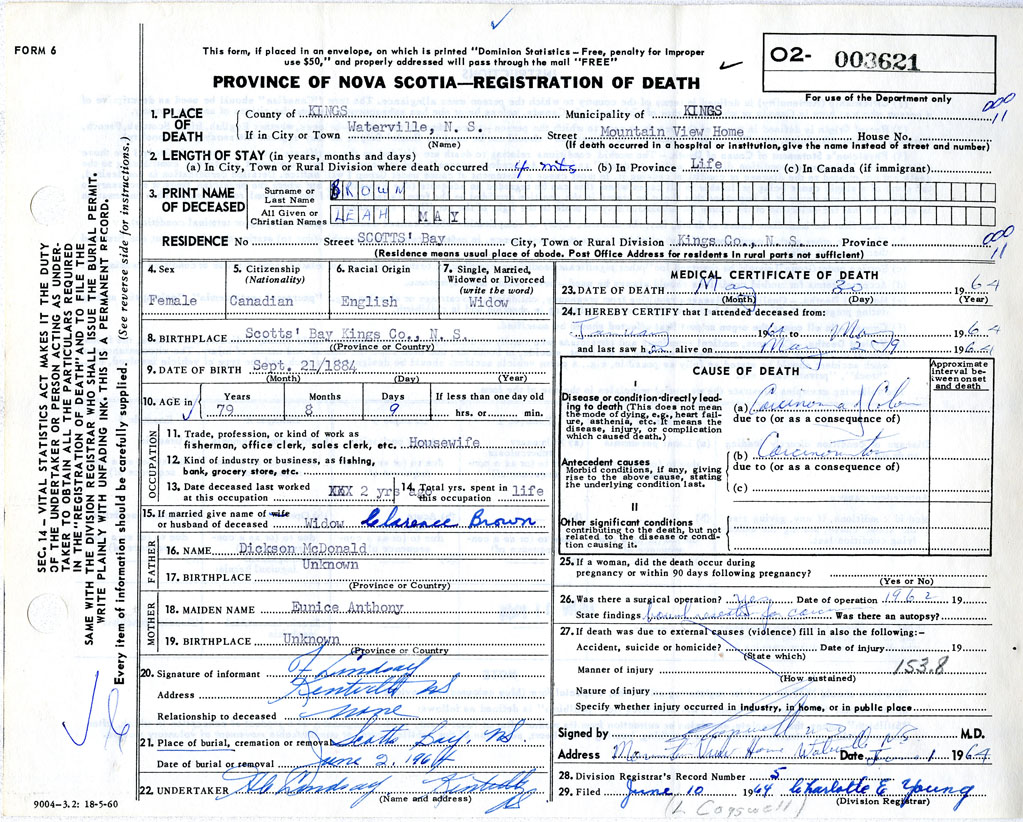 FORM 6
This form, if placed in an envelope, on which is printed "Dominion Statistics – Free, penalty for improper
use $50," and properly addressed will pass through the mail "FREE"
PROVINCE OF NOVA SCOTIA—REGISTRATION OF DEATH
O2- 003621
For use of the Department only
1. PLACE OF DEATH
County of KINGS Municipality of KINGS
000 11
If in City or Town Waterville, N. S. Street Mountain View Home House No.
(Name) (If death occurred in a hospital or institution, give the name instead of street and number)
2. LENGTH OF STAY (in years, months and days)
(a) In City, Town or Rural Division where death occurred 4 mts (b) In Province Life (c) In Canada (if immigrant)
3. PRINT NAME OF DECEASED
Surname or Last Name BROWN
All Given or Christian Names LEAH MAY
RESIDENCE No Street SCOTTS' Bay City, Town or Rural Division Kings Co., N. S. Province
000 11
(Residence means usual place of abode. Post Office Address for residents in rural parts not sufficient)
4. Sex Female
5. Citizenship (Nationality) Canadian
6. Racial Origin English
7. Single, Married, Widowed or Divorced (write the word) Widow
8. BIRTHPLACE Scotts' Bay Kings Co., N. S.
(Province or Country)
9. DATE OF BIRTH Sept. 21/1884
(Month) (Day) (Year)
10. AGE in Years 79 Months 8 Days 9 If less than one day old hrs. or min.
OCCUPATION
11. Trade, profession, or kind of work as fisherman, office clerk, sales clerk, etc. Housewife
12. Kind of industry or business, as fishing, bank, grocery store, etc.
13. Date deceased last worked at this occupation XXX 2 yrs ago
14. Total yrs. spent in this occupation life
15. If married give name of wife or husband of deceased Widow Clarence Brown
FATHER
16. NAME Dickson McDonald
17. BIRTHPLACE Unknown
(Province or Country)
MOTHER
18. MAIDEN NAME Eunice Anthony
19. BIRTHPLACE Unknown
(Province or Country)
20. Signature of informant F Lindsay
Address Kentville NS
Relationship to deceased none
21. Place of burial, cremation or removal Scotts Bay, NS.
Date of burial or removal June 2, 1964
22. UNDERTAKER Lindsay Kentville NS
(Name and address)
9004-3.2: 18-5-60
MEDICAL CERTIFICATE OF DEATH
23. DATE OF DEATH May 30 1964
(Month) (Day) (Year)
24. I HEREBY CERTIFY that I attended deceased from:
January 1964 to May 1964
and last saw her alive on May 29 1964
CAUSE OF DEATH
Approximate interval between onset and death
I
Disease or condition directly leading to death (This does not mean the mode of dying, e.g., heart failure, asthenia, etc. It means the disease, injury, or complication which caused death.)
(a) Carcinoma of Colon
due to (or as a consequence of)
Antecedent causes
Morbid conditions, if any, giving rise to the above cause, stating the underlying condition last.
(b)
due to (or as a consequence of)
(c)
II
Other significant conditions
contributing to the death, but not related to the disease or condition causing it.
25. If a woman, did the death occur during
pregnancy or within 90 days following pregnancy?
(Yes or No)
26. Was there a surgical operation? yes Date of operation 1962 19
State findings Was there an autopsy?
27. If death was due to external causes (violence) fill in also the following:–
Accident, suicide or homicide? Date of injury 19
(State which)
Manner of injury 153.8
(How sustained)
Nature of injury
Specify whether injury occurred in industry, in home, or in public place
Signed by M.D.
Address Mountain View Home Date 1 1964
28. Division Registrar's Record Number 5
29. Filed June 10 1964 Charlotte E Young
(Division Registrar)
(L Cogswell)
SEC. 14 – VITAL STATISTICS ACT MAKES IT THE DUTY
OF THE UNDERTAKER OR PERSON ACTING AS UNDER-
TAKER TO OBTAIN ALL THE PARTICULARS REQUIRED
IN THE "REGISTRATION OF DEATH" AND TO FILE THE
SAME WITH THE DIVISION REGISTRAR WHO SHALL ISSUE THE BURIAL PERMIT.
WRITE PLAINLY WITH UNFADING INK. THIS IS A PERMANENT RECORD.
Every item of information should be carefully supplied. (See reverse side for instructions.)